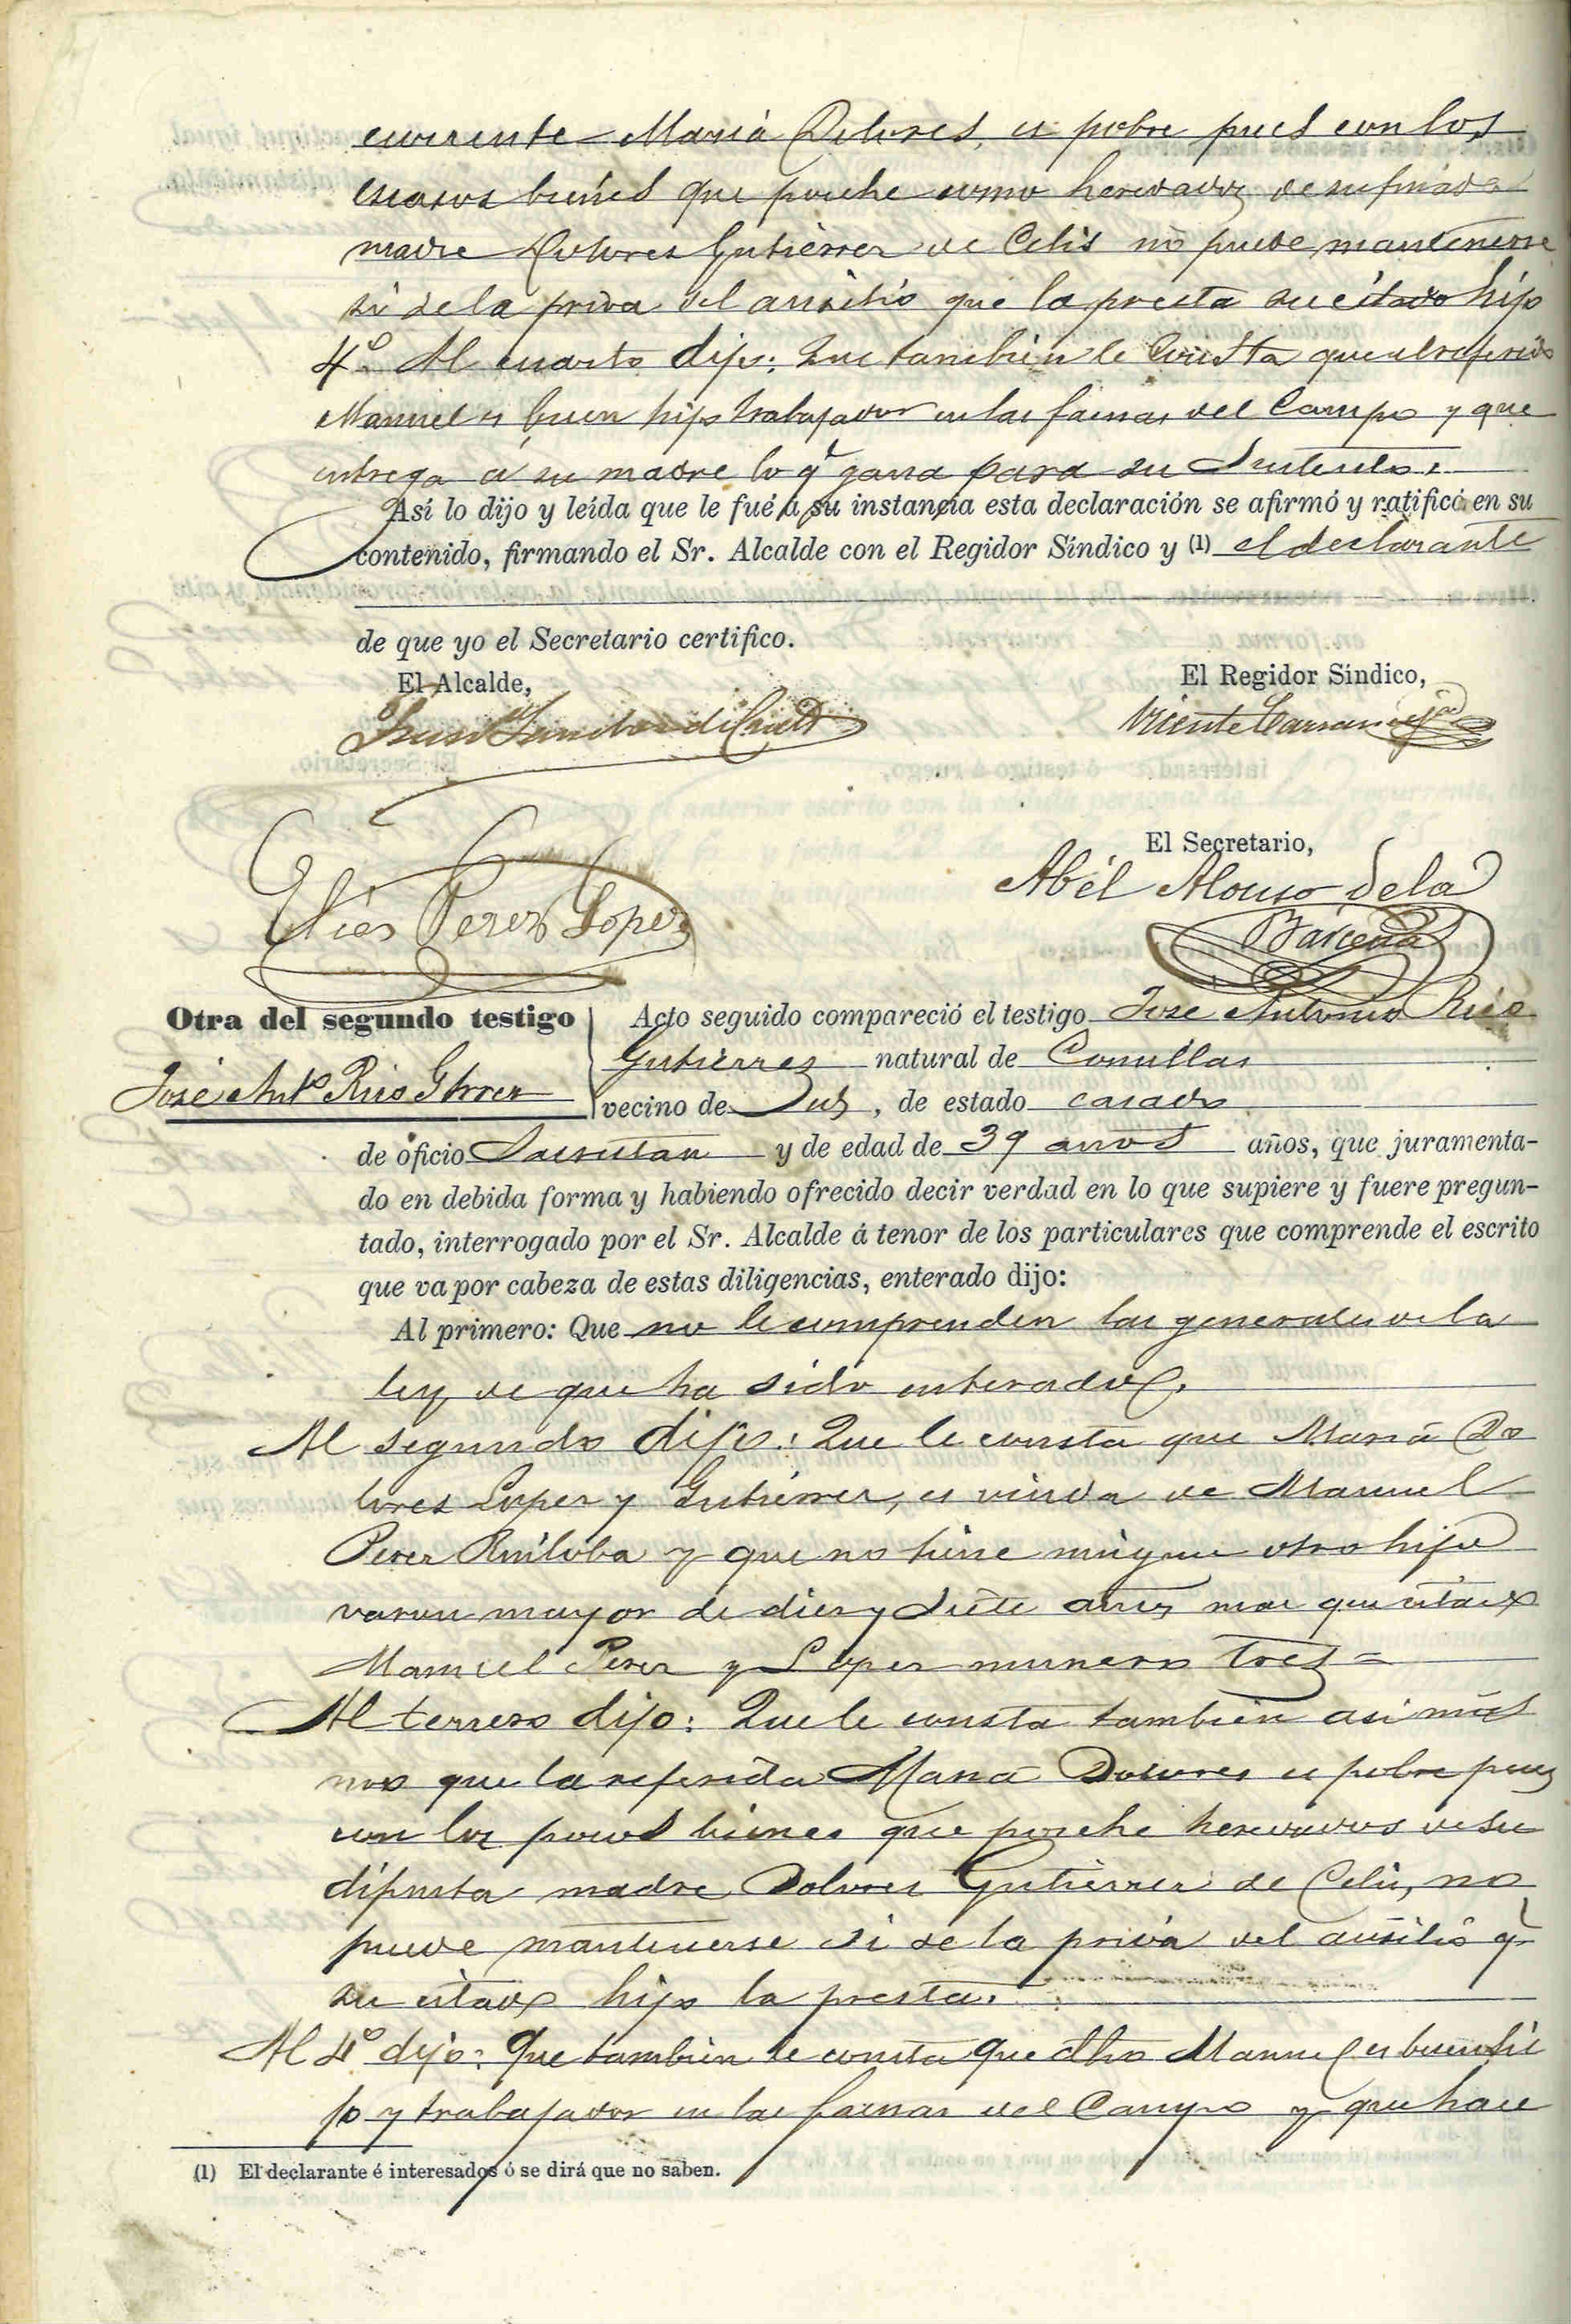 currente María Dolores, es pobre pues con los
escasos bienes que poséhe como heredados de su finada
madre Dolores Gutiérrez de Celis no puede mantenerse
si se la priva del ausilio que la presta su citado hijo
4º Al cuarto dijo: Que tambien le consta que el referido
Manuel es buen hijo trabajador en las faenas del Campo y que
entrega á su madre lo qe gana para su sustento.
Así lo dijo y leída que le fué á su instancia esta declaración se afirmó y ratificó en su
contenido, firmando el Sr. Alcalde con el Regidor Síndico y (1) el declarante
de que yo el Secretario certifico.
El Alcalde,
El Regidor Síndico,
Vicente
El Secretario,
Abél Alonso de la
Bárcena
Elías Perez Lopez
Otra del segundo testigo
José Anto Rius Gtrrez
Acto seguido compareció el testigo José Antonio Rius
Gutiérrez natural de Comillas
vecino de , de estado casado
de oficio Sacristan y de edad de 39 años años, que juramenta-
do en debida forma y habiendo ofrecido decir verdad en lo que supiere y fuere pregun-
tado, interrogado por el Sr. Alcalde á tenor de los particulares que comprende el escrito
que va por cabeza de estas diligencias, enterado dijo:
Al primero: Que no le comprenden las generales de la
ley de que ha sido enterado.
Al segundo dijo: Que le consta que María Do
lores Lopez y Gutiérrez, es viuda de Manuel
Perez Ruiloba y que no tiene ningun otro hijo
varon mayor de diez y siete años mas que citado
Manuel Perez y Lopez numero tres =
Al tercero dijo: Que le consta tambien asi mis
mo que la referida María Dolores es pobre pues
con los pocos bienes que poséhe heredados de su
difunta madre Dolores Gutiérrez de Celis, no
puede mantenerse si se la priva del ausilio qe
su citado hijo la presta.
Al 4º dijo: Que tambien le consta que dho Manuel es buen hi
jo y trabajador en las faenas del Campo y que hace
(1) El declarante é interesados ó se dirá que no saben.